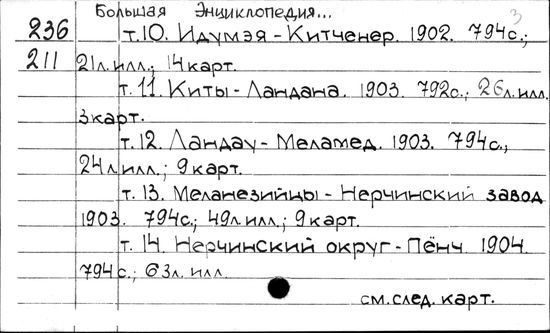 Большая Энциклопедия... 3
236 т.10. Идумэя - Китченер. 1902. 794с.;
211 21л.илл.; 14карт.
т.11. Киты - Ландана. 1903. 792с.; 26л.илл.
3карт.
т.12. Ландау - Меламед. 1903. 794с.,
24л.илл.; 9карт.
т.13. Меланезийцы - Нерчинский завод
1903. 794с.; 49л.илл.; 9карт.
т.14. Нерчинский округ - Пёнч. 1904.
794с.; 63л.илл.
см.след. карт.